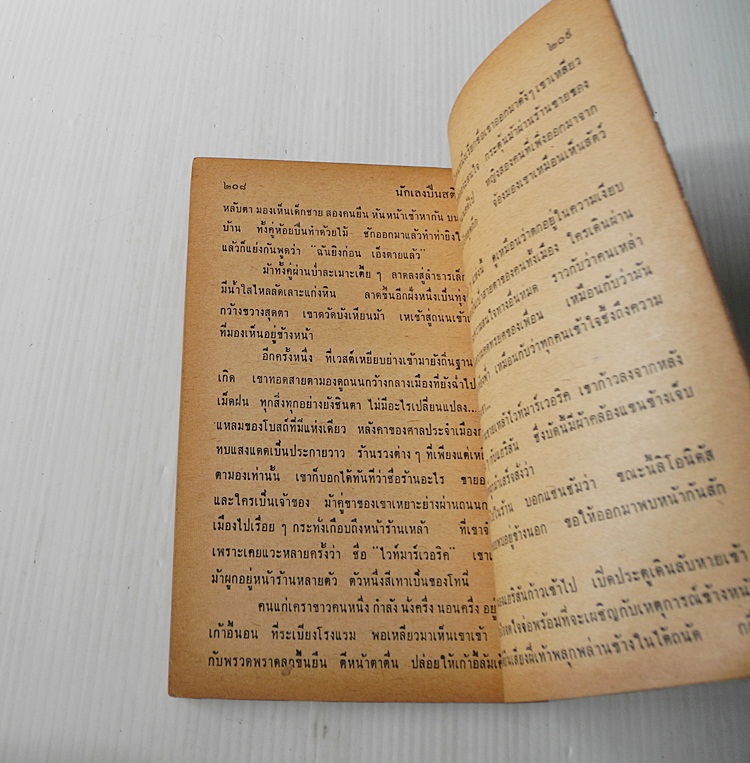 ๒๐๘ นักเลงปืนสติ
หลับตา มองเห็นเด็กชาย สองคนยืน หันหน้าเข้าหากัน บน
บ้าน ทั้งคู่ห้อยปืนทำด้วยไม้ ชักออกมาแล้วทำท่ายิงใ
แล้วก็แย่งกันพูดว่า "ฉันยิงก่อน เอ็งตายแล้ว"
ม้าทั้งคู่ผ่านป่าละเมาะเตี้ย ๆ ลาดลงสู่ลำธารเล็ก
มีน้ำใสไหลลัดเลาะแก่งหิน ลาดขึ้นอีกฝั่งหนึ่งเป็นทุ่ง
กว้างขวางสุดตา เขาตวัดบังเหียนม้า เหเข้าสู่ถนนเข้า
ที่มองเห็นอยู่ข้างหน้า
อีกครั้งหนึ่ง ที่เวสต์เหยียบย่างเข้ามายังถิ่นฐาน
เกิด เขาทอดสายตามองดูถนนกว้างกลางเมืองที่ยังฉ่ำไป
เม็ดฝน ทุกสิ่งทุกอย่างยังชินตา ไม่มีอะไรเปลี่ยนแปลง...
แหลมของโบสถ์ที่มีแห่งเดียว หลังคาของศาลประจำเมือง
ทบแสงแดดเป็นประกายวาว ร้านรวงต่าง ๆ ที่เพียงแต่เห
ตามองเท่านั้น เขาก็บอกได้ทันทีว่าชื่อร้านอะไร ขายอ
และใครเป็นเจ้าของ ม้าคู่ขาของเขาเหยาะย่างผ่านถนนก
เมืองไปเรื่อย ๆ กระทั่งเกือบถึงหน้าร้านเหล้า ที่เขาจำ
เพราะเคยแวะหลายครั้งว่า ชื่อ "ไวท์มาร์เวอริค" เขา
ม้าผูกอยู่หน้าร้านหลายตัว ตัวหนึ่งสีเทาเป็นของโทนี่
คนแก่เคราขาวคนหนึ่ง กำลัง นั่งครึ่ง นอนครึ่ง อยู่
เก้าอี้นอน ที่ระเบียงโรงแรม พอเหลียวมาเห็นเขาเข้า
กับพรวดพราดลุกขึ้นยืน ตีหน้าตาตื่น ปล่อยให้เก้าอี้ล้ม
๒๐๙
เรียกชื่อเขาออกมาดังๆ เขาเหลียว
สนใจ กระตุ้นม้าผ่านร้านขายของ
ไป หญิงสองคนที่เพิ่งออกมาจาก
จ้องมองเขาเหมือนเห็นสัตว์
ดูเหมือนว่าตกอยู่ในความเงียบ
สายตาของคนทั้งเมือง ใครเดินผ่าน
สนใจทางอื่นหมด ราวกับว่าคนเหล่า
ทรยศของเพื่อน เหมือนกับว่ามัน
เหมือนกับว่าทุกคนเข้าใจซึ้งถึงความ
เหล้าไวท์มาร์เวอริค เขาก้าวลงจากหลัง
แฮริสัน ซึ่งบัดนี้มีผ้าคล้องแขนข้างเจ็บ
ร้าน บอกแซนชัมว่า ขณะนี้ลีโอนิดัส
อยู่ข้างนอก ขอให้ออกมาพบหน้ากันสัก
แฮริสันก้าวเข้าไป เปิดประตูเดินลับหายเข้า
จดใจจ่อพร้อมที่จะเผชิญกับเหตุการณ์ข้างหน้
ยินเสียงฝีเท้าพลุกพล่านข้างในได้ถนัด